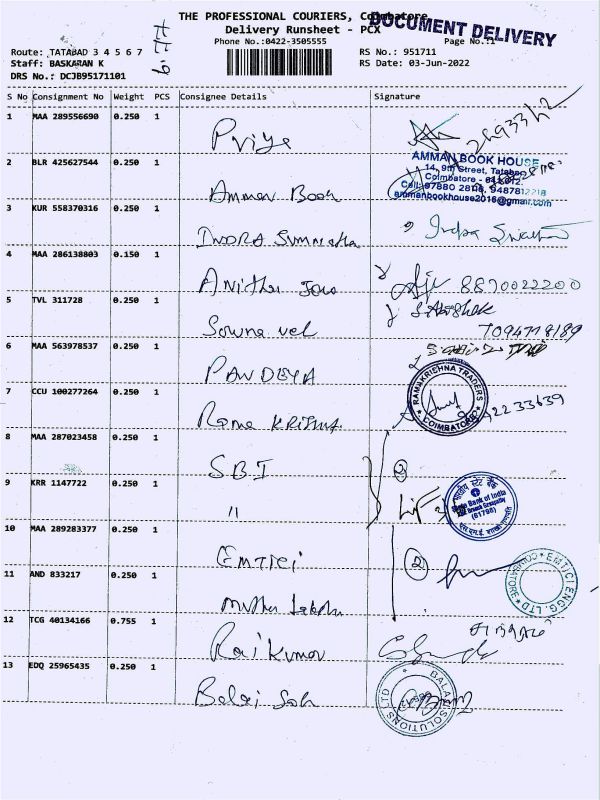 THE PROFESSIONAL COURIERS, Coimbatore
Delivery Runsheet - PCX
DOCUMENT DELIVERY
Phone No.:0422-3505555
Page No.:1
Route: TATABAD 3 4 5 6 7
RS No.: 951711
Staff: BASKARAN K
RS Date: 03-Jun-2022
DRS No.: DCJB95171101
S No Consignment No Weight PCS Consignee Details Signature
1 MAA 289556690 0.250 1 Priya
2 BLR 425627544 0.250 1 Amman Book
AMMAN BOOK HOUSE
14, 9th Street, Tatabad
Coimbatore - 641012.
Cell: 97880 28118, 948781
ammanbookhouse2016@gmail.com
3 KUR 558370316 0.250 1 INDRA
4 MAA 286138803 0.150 1 Anitha 8870022200
5 TVL 311728 0.250 1 Sowna vel S.Abishek
7094718189
6 MAA 563978537 0.250 1 PANDEYA
7 CCU 100277264 0.250 1 Rama KRISHNA
RAMAKRISHNA TRADERS
COIMBATORE
8 MAA 287023458 0.250 1 SBI 2
9 KRR 1147722 0.250 1 "
भारतीय स्टेट बैंक
State Bank of India
10 MAA 289283377 0.250 1 EMTICI 2
EMTICI ENGG. LTD
COIMBATORE
11 AND 833217 0.250 1 Muthu
12 TCG 40134166 0.755 1 Raj Kumar
13 EDQ 25965435 0.250 1 Balaji Soln
BALAJI SOLUTIONS LTD